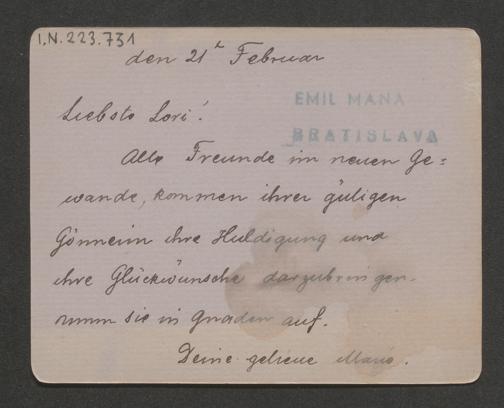 I.N. 223.731
den 21ᵗ Februar
EMIL MANA
BRATISLAVA
Liebste Lori!
Alle Freunde im neuen Ge=
wande, kommen ihrer gütigen
Gönnerin ihre Huldigung und
ihre Glückwünsche darzubringen.
nimm sie in Gnaden auf.
Deine getreue